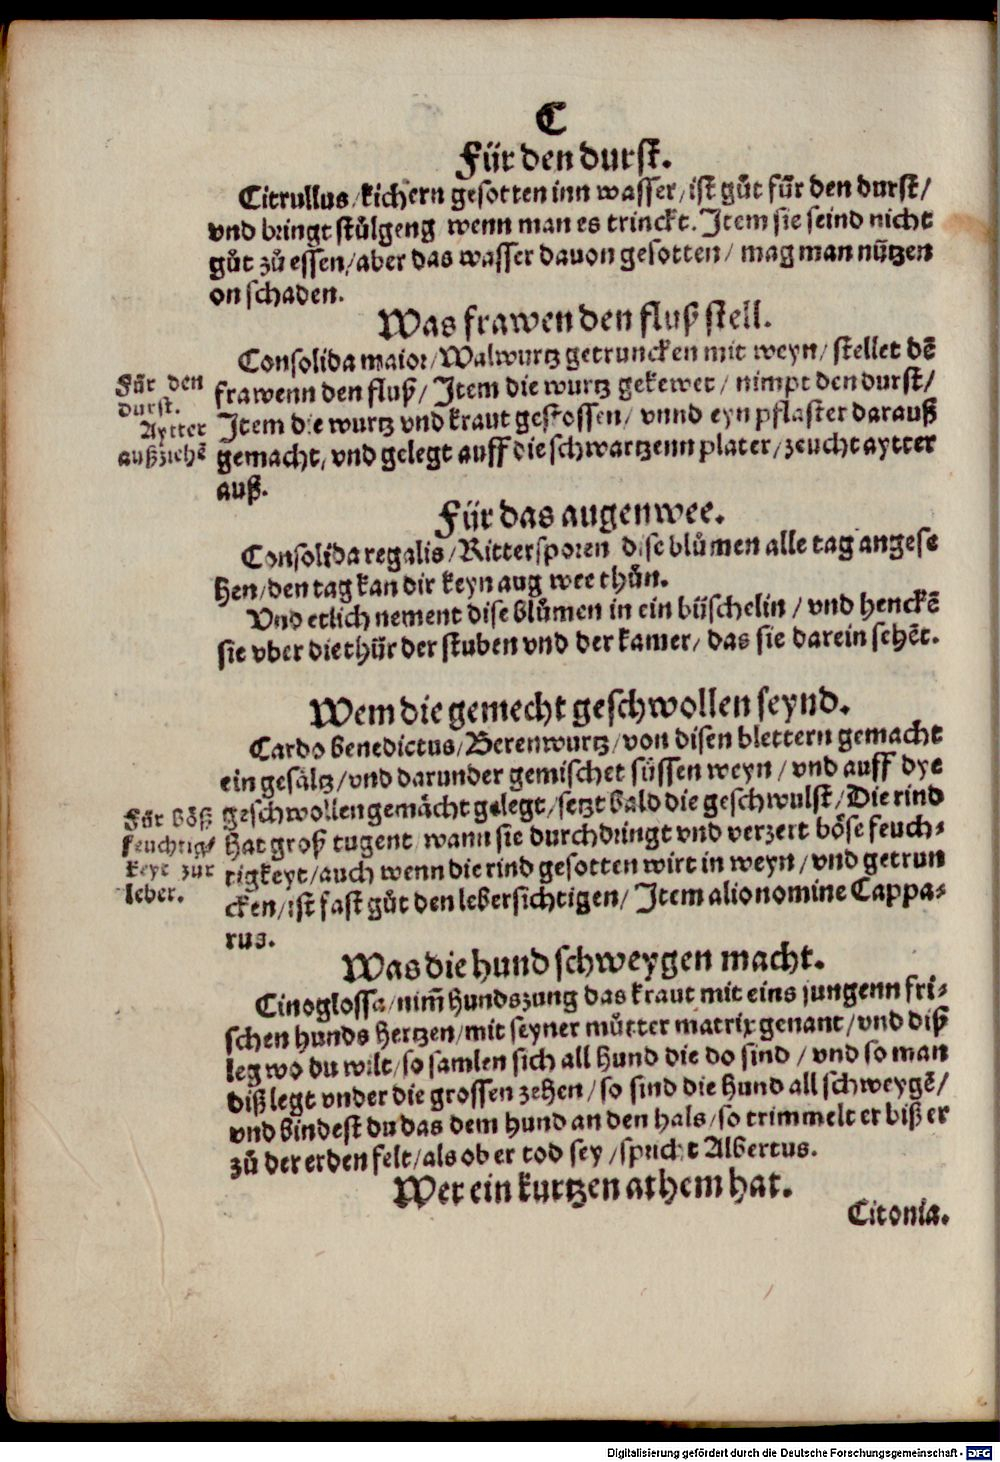 C
Für den durst.
Citrullus / kichern gesotten inn wasser / ist gůt für den durst /
vnd bringt stůlgeng wenn man es trinckt. Item sie seind nicht
gůt zů essen / aber das wasser dauon gesotten / mag man nützen
on schaden.
Was frawen den fluß stell.
Consolida maior / Walwurtz getruncken mit weyn / stellet dē
frawenn den fluß / Item die wurtz gekewet / nimpt den durst /
Item die wurtz vnd kraut gestossen / vnnd eyn pflaster darauß
gemacht / vnd gelegt auff die schwartzenn plater / zeucht aytter
auß.
Für den
durst.
Aytter
außziehē
Für das augenwee.
Consolida regalis / Rittersporen dise blůmen alle tag angese
hen / den tag kan dir keyn aug wee thůn.
Vnd etlich nement dise blůmen in ein büschelin / vnd henckē
sie vber die thür der stuben vnd der kamer / das sie darein sehēt.
Wem die gemecht geschwollen seynd.
Cardo benedictus / Berenwurtz / von disen blettern gemacht
ein gesältz / vnd darunder gemischet süssen weyn / vnd auff dye
geschwollen gemächt gelegt / setzt bald die geschwulst / Die rind
hat groß tugent / wann sie durchdringt vnd verzert böse feuch-
tigkeyt / auch wenn die rind gesotten wirt in weyn / vnd getrun
cken / ist fast gůt den lebersichtigen / Item alio nomine Cappa-
rus.
Für böß
feuchtig-
keyt zur
leber.
Was die hund schweygen macht.
Cinoglossa / nim̄ Hundszung das kraut mit eins jungenn fri-
schen hunds hertzen / mit seyner můtter matrix genant / vnd diß
leg wo du wilt / so samlen sich all hund die do sind / vnd so man
diß legt vnder die grossen zehen / so sind die hund all schweygē /
vnd bindest du das dem hund an den hals / so trimmelt er biß er
zů der erden felt / als ob er tod sey / spricht Albertus.
Wer ein kurtzen athem hat.
Citonia.
Digitalisierung gefördert durch die Deutsche Forschungsgemeinschaft - DFG